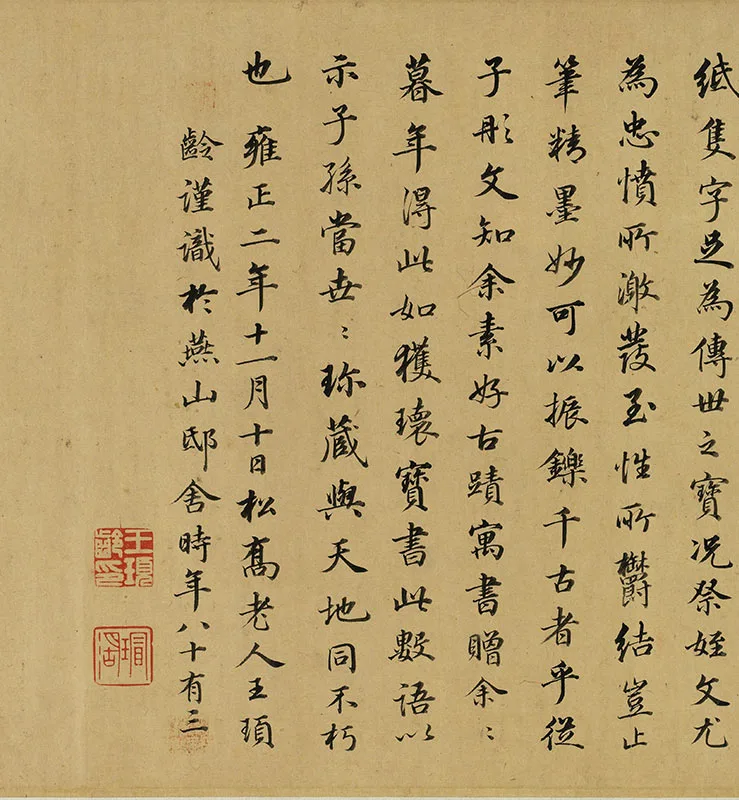 紙隻字足為傳世之寶況祭姪文尤
為忠憤所激發至性所鬱結豈止
筆精墨妙可以振鑠千古者乎從
子彤文知余素好古蹟寓書贈余〻
暮年得此如獲瓌寶書此數語以
示子孫當世〻珍藏與天地同不朽
也 雍正二年十一月十日松喬老人王頊
齡謹識於燕山邸舍時年八十有三
王頊齡印
瑁湖